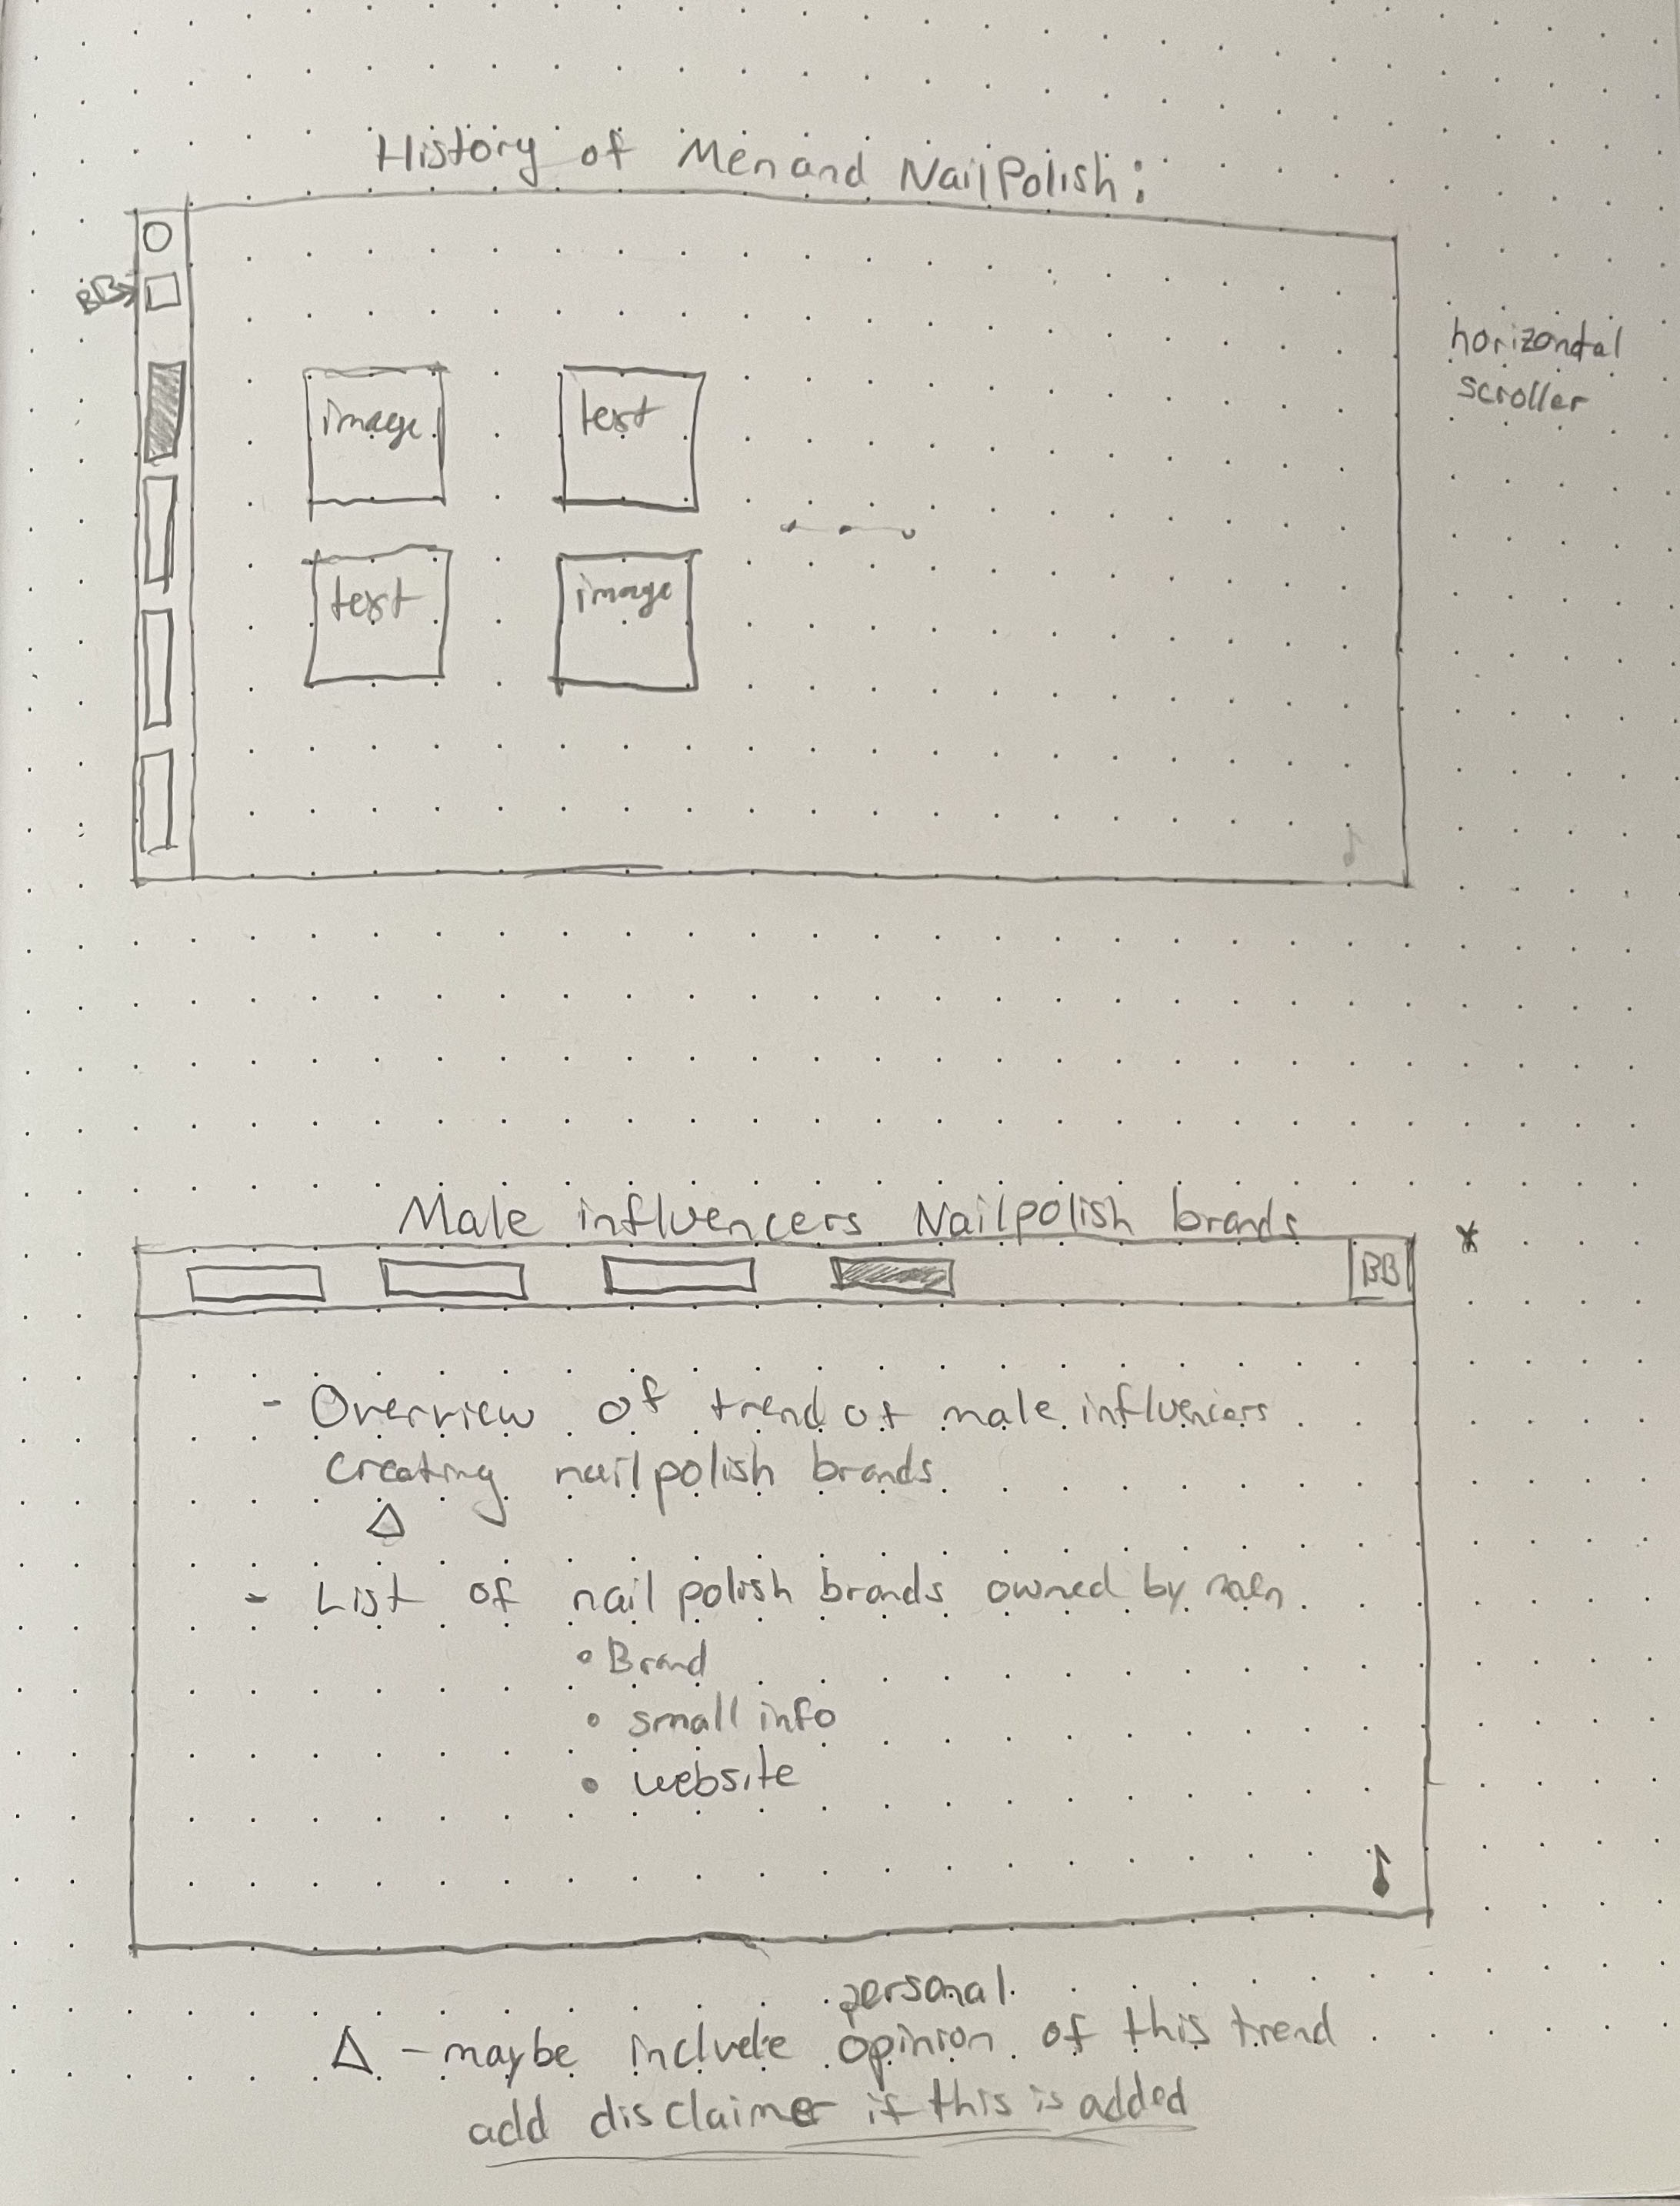 History of Men and Nail Polish:
BB
horizontal
scroller
image
text
text
image
Male influencers Nailpolish brands
*
BB
- Overview of trend of male influencers
creating nailpolish brands
Δ
- List of nail polish brands owned by men
• Brand
• small info
• website
personal
Δ - maybe include opinion of this trend
add disclaimer if this is added